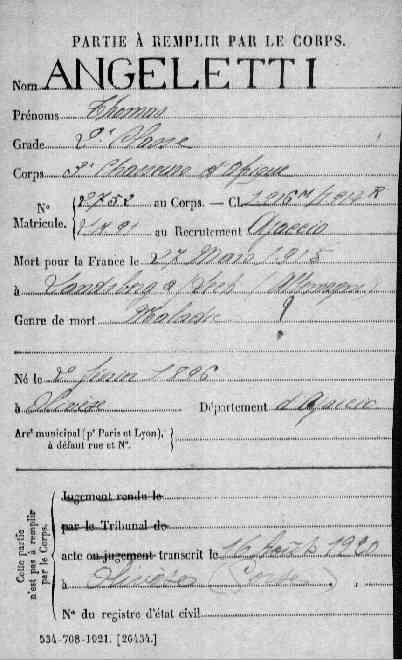 PARTIE À REMPLIR PAR LE CORPS.
Nom ANGELETTI
Prénoms Thomas
Grade 2e Classe
Corps d'Afrique
No Matricule. 2752 au Corps. — Cl.
au Recrutement Ajaccio
Mort pour la France le 27 Mars 1915
à Landsberg a/Lech (Allemagne)
Genre de mort Maladie
Né le 2 1896
à Département d'Ajaccio
Arrt municipal (pr Paris et Lyon),
à défaut rue et No.
Cette partie
n'est pas à remplir
par le Corps.
Jugement rendu le
par le Tribunal de
acte ou jugement transcrit le 16 Août 1920
à (Corse)
No du registre d'état civil
534-708-1921. [26434.]